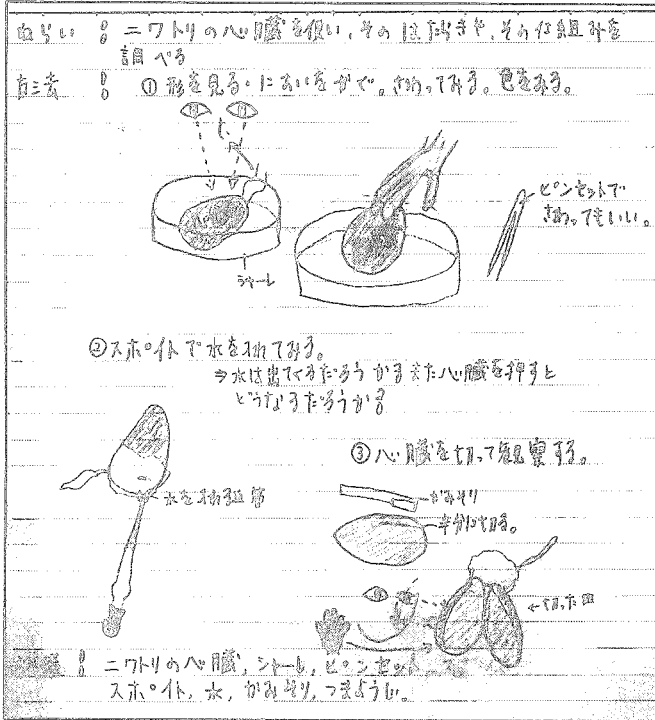 ねらい : ニワトリの心臓を使い、そのはたらきや、その仕組みを
調べる
方法 : ①形を見る・においをかぐ。さわってみる。色をみる。
ピンセットで
さわってもいい。
シャーレ
②スポイトで水を入れてみる。
⇒水は出てくるだろうか? また心臓を押すと
どうなるだろうか?
水を入れる血管
③心臓を切って観察する。
かみそり
半分に切る。
←切った面
: ニワトリの心臓, シャーレ, ピンセット
スポイト, 水, かみそり, つまようじ。